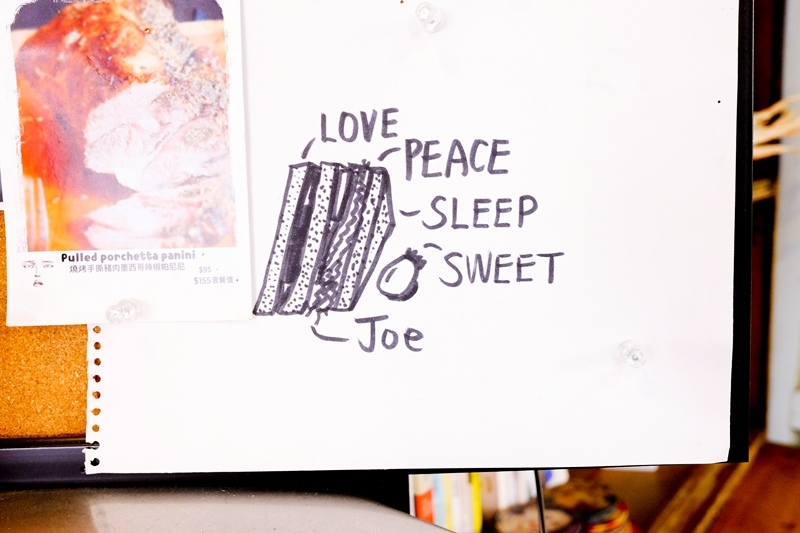 LOVE
PEACE
SLEEP
SWEET
Joe
Pulled porchetta panini
燒烤手撕豬肉墨西哥辣椒帕尼尼
$95
$155套餐價